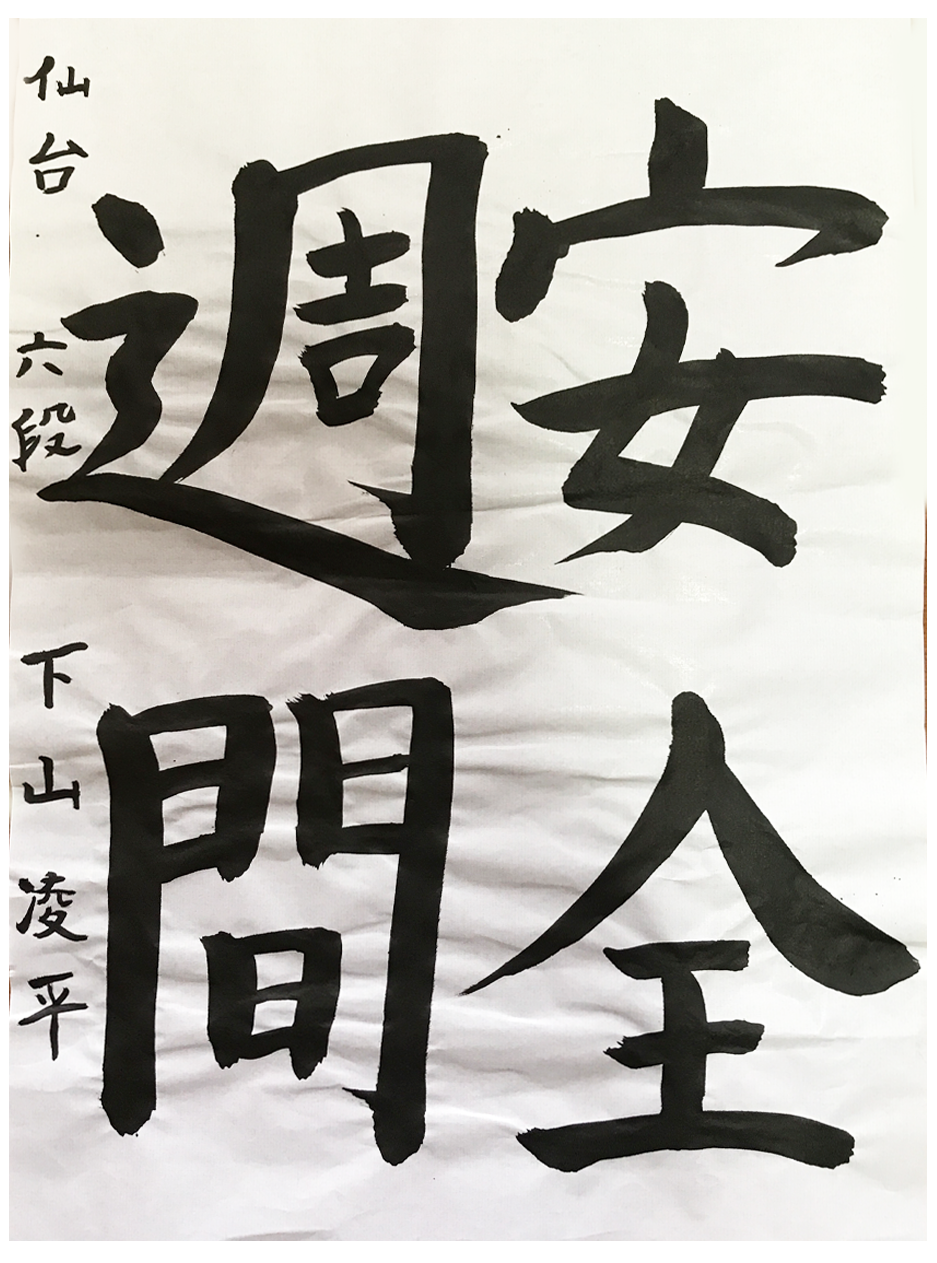 安全
週間
仙台 六段 下山凌平